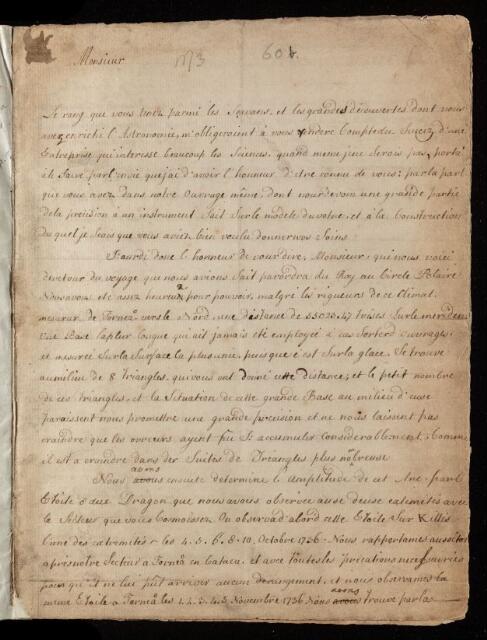 Monsieur 1773 60 b.
Le rang que vous tenez parmi les Sçavans, et les grandes découvertes dont vous
avez enrichi l'Astronomie, m'obligeroient à vous rendre Compte du Succez d'une
Entreprise qui interesse beaucoup les Sciences, quand meme je ne serois pas porté
à le faire par l'envie que j'ai d'avoir l'honneur d'etre connu de vous: par la part
que vous avez dans notre Ouvrage même, dont nous devons une grande partie
de la précision à un instrument fait sur le modele du votre, et à la Construction
duquel je sçais que vous aviez bien voulu donner vos Soins
J'aurai donc l'honneur de vous dire, Monsieur; que nous voici
de retour du voyage que nous avions fait par ordre du Roy au Cercle Polaire
Nous avons eté assez heureux pour pouvoir, malgré les rigueurs de ce Climat
mesurer de Torneå vers le Nord une distance de 55023.47 toises sur le meridien
une Base la plus longue qui ait jamais eté employée à ces sortes d'ouvrages,
et mesurée sur la surface la plus unie, puisque c'est sur la glace, se trouve
au milieu de 8 triangles qui nous ont donné cette distance; et le petit nombre
de ces triangles, et la Situation de cette grande Base au milieu d'eux
paraissent nous promettre une grande precision et ne nous laissent pas
craindre que les erreurs ayent pu s'accumuler Considerablement; Comme
il est a craindre dans des Suites de Triangles plus nõbreuse
avons
Nous avous ensuite determiné l'Amplitude de cet Arc par l'
Etoile δ du Dragon que nous avons observée aux deux extremités avec
le Secteur que vous connoissez On observa d'abord cette Etoile sur Kittis
l'une des extremités les 4. 5. 6. 8. 10. Octobre 1736. Nous rapportames aussitot
apres notre Secteur a Torneå en bateau, et avec toutes les précautions necessaires
pour qu'il ne lui put arriver aucun derangement, et nous observames la
avons
meme Etoile a Torneå les 1. 2. 3. 4. 5 Novembre 1736 Nous avous trouvé par les